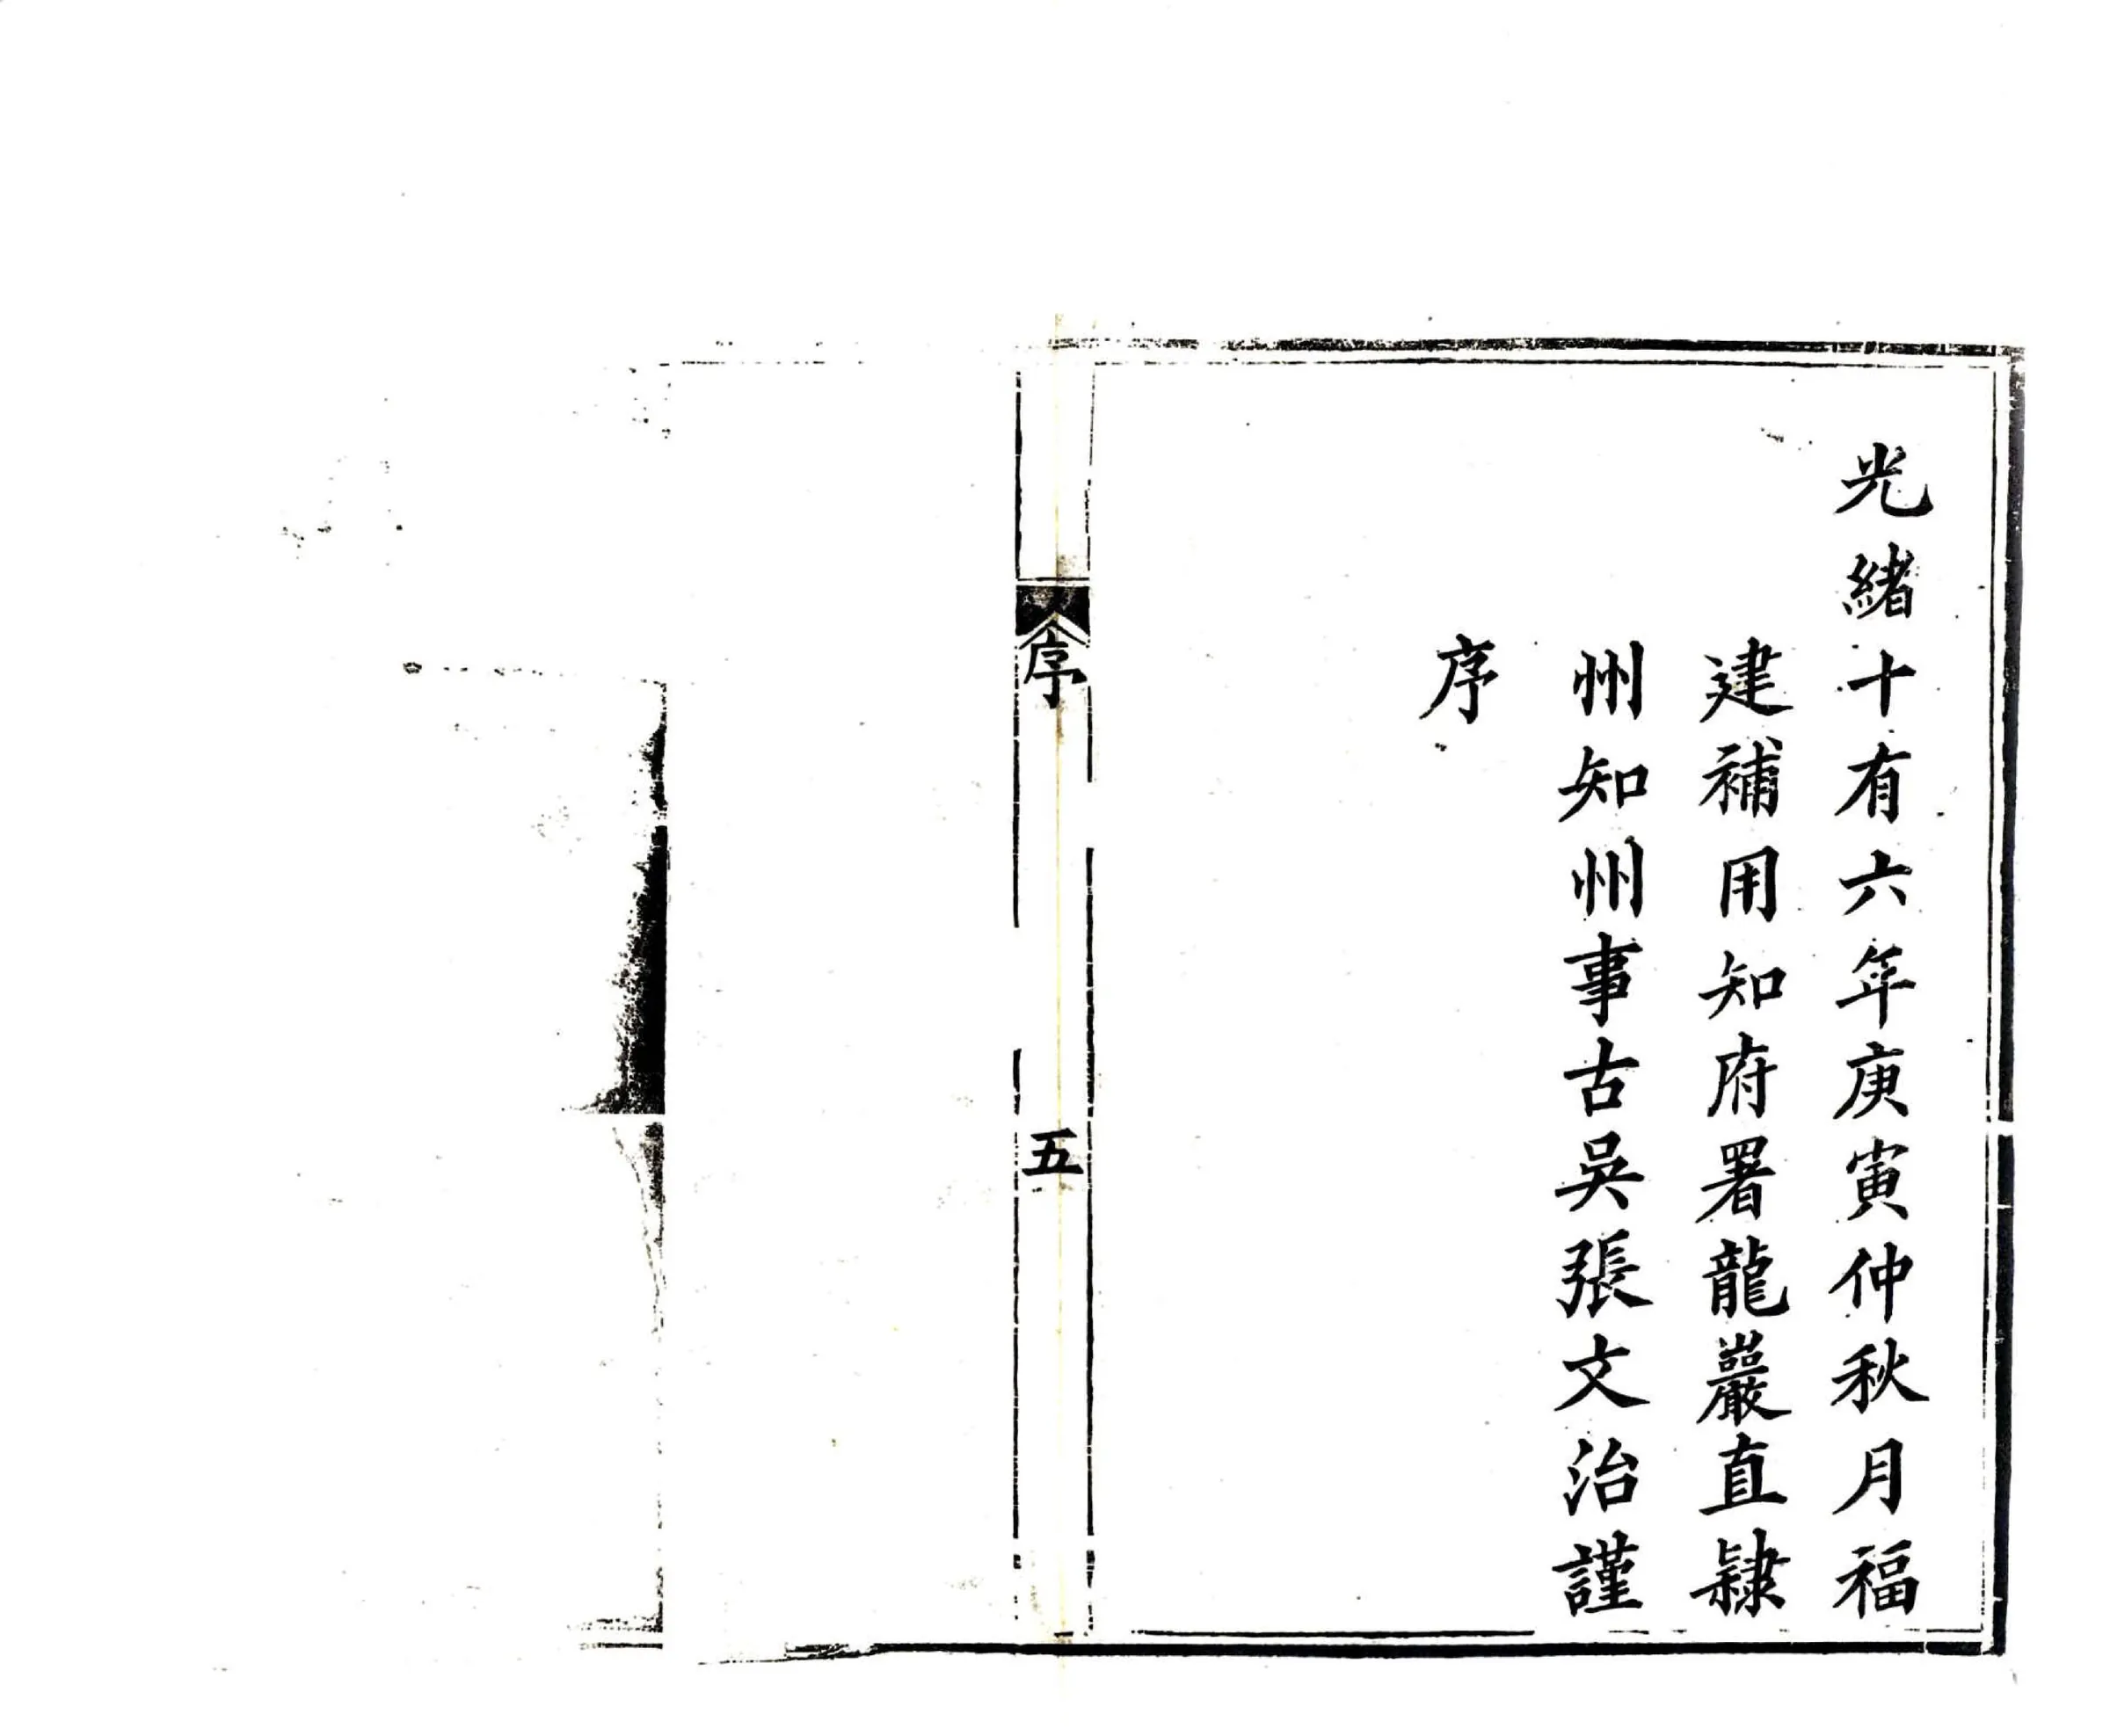 光緒十有六年庚寅仲秋月福
建補用知府署龍巖直隸
州知州事古吳張文治謹
序
序
五